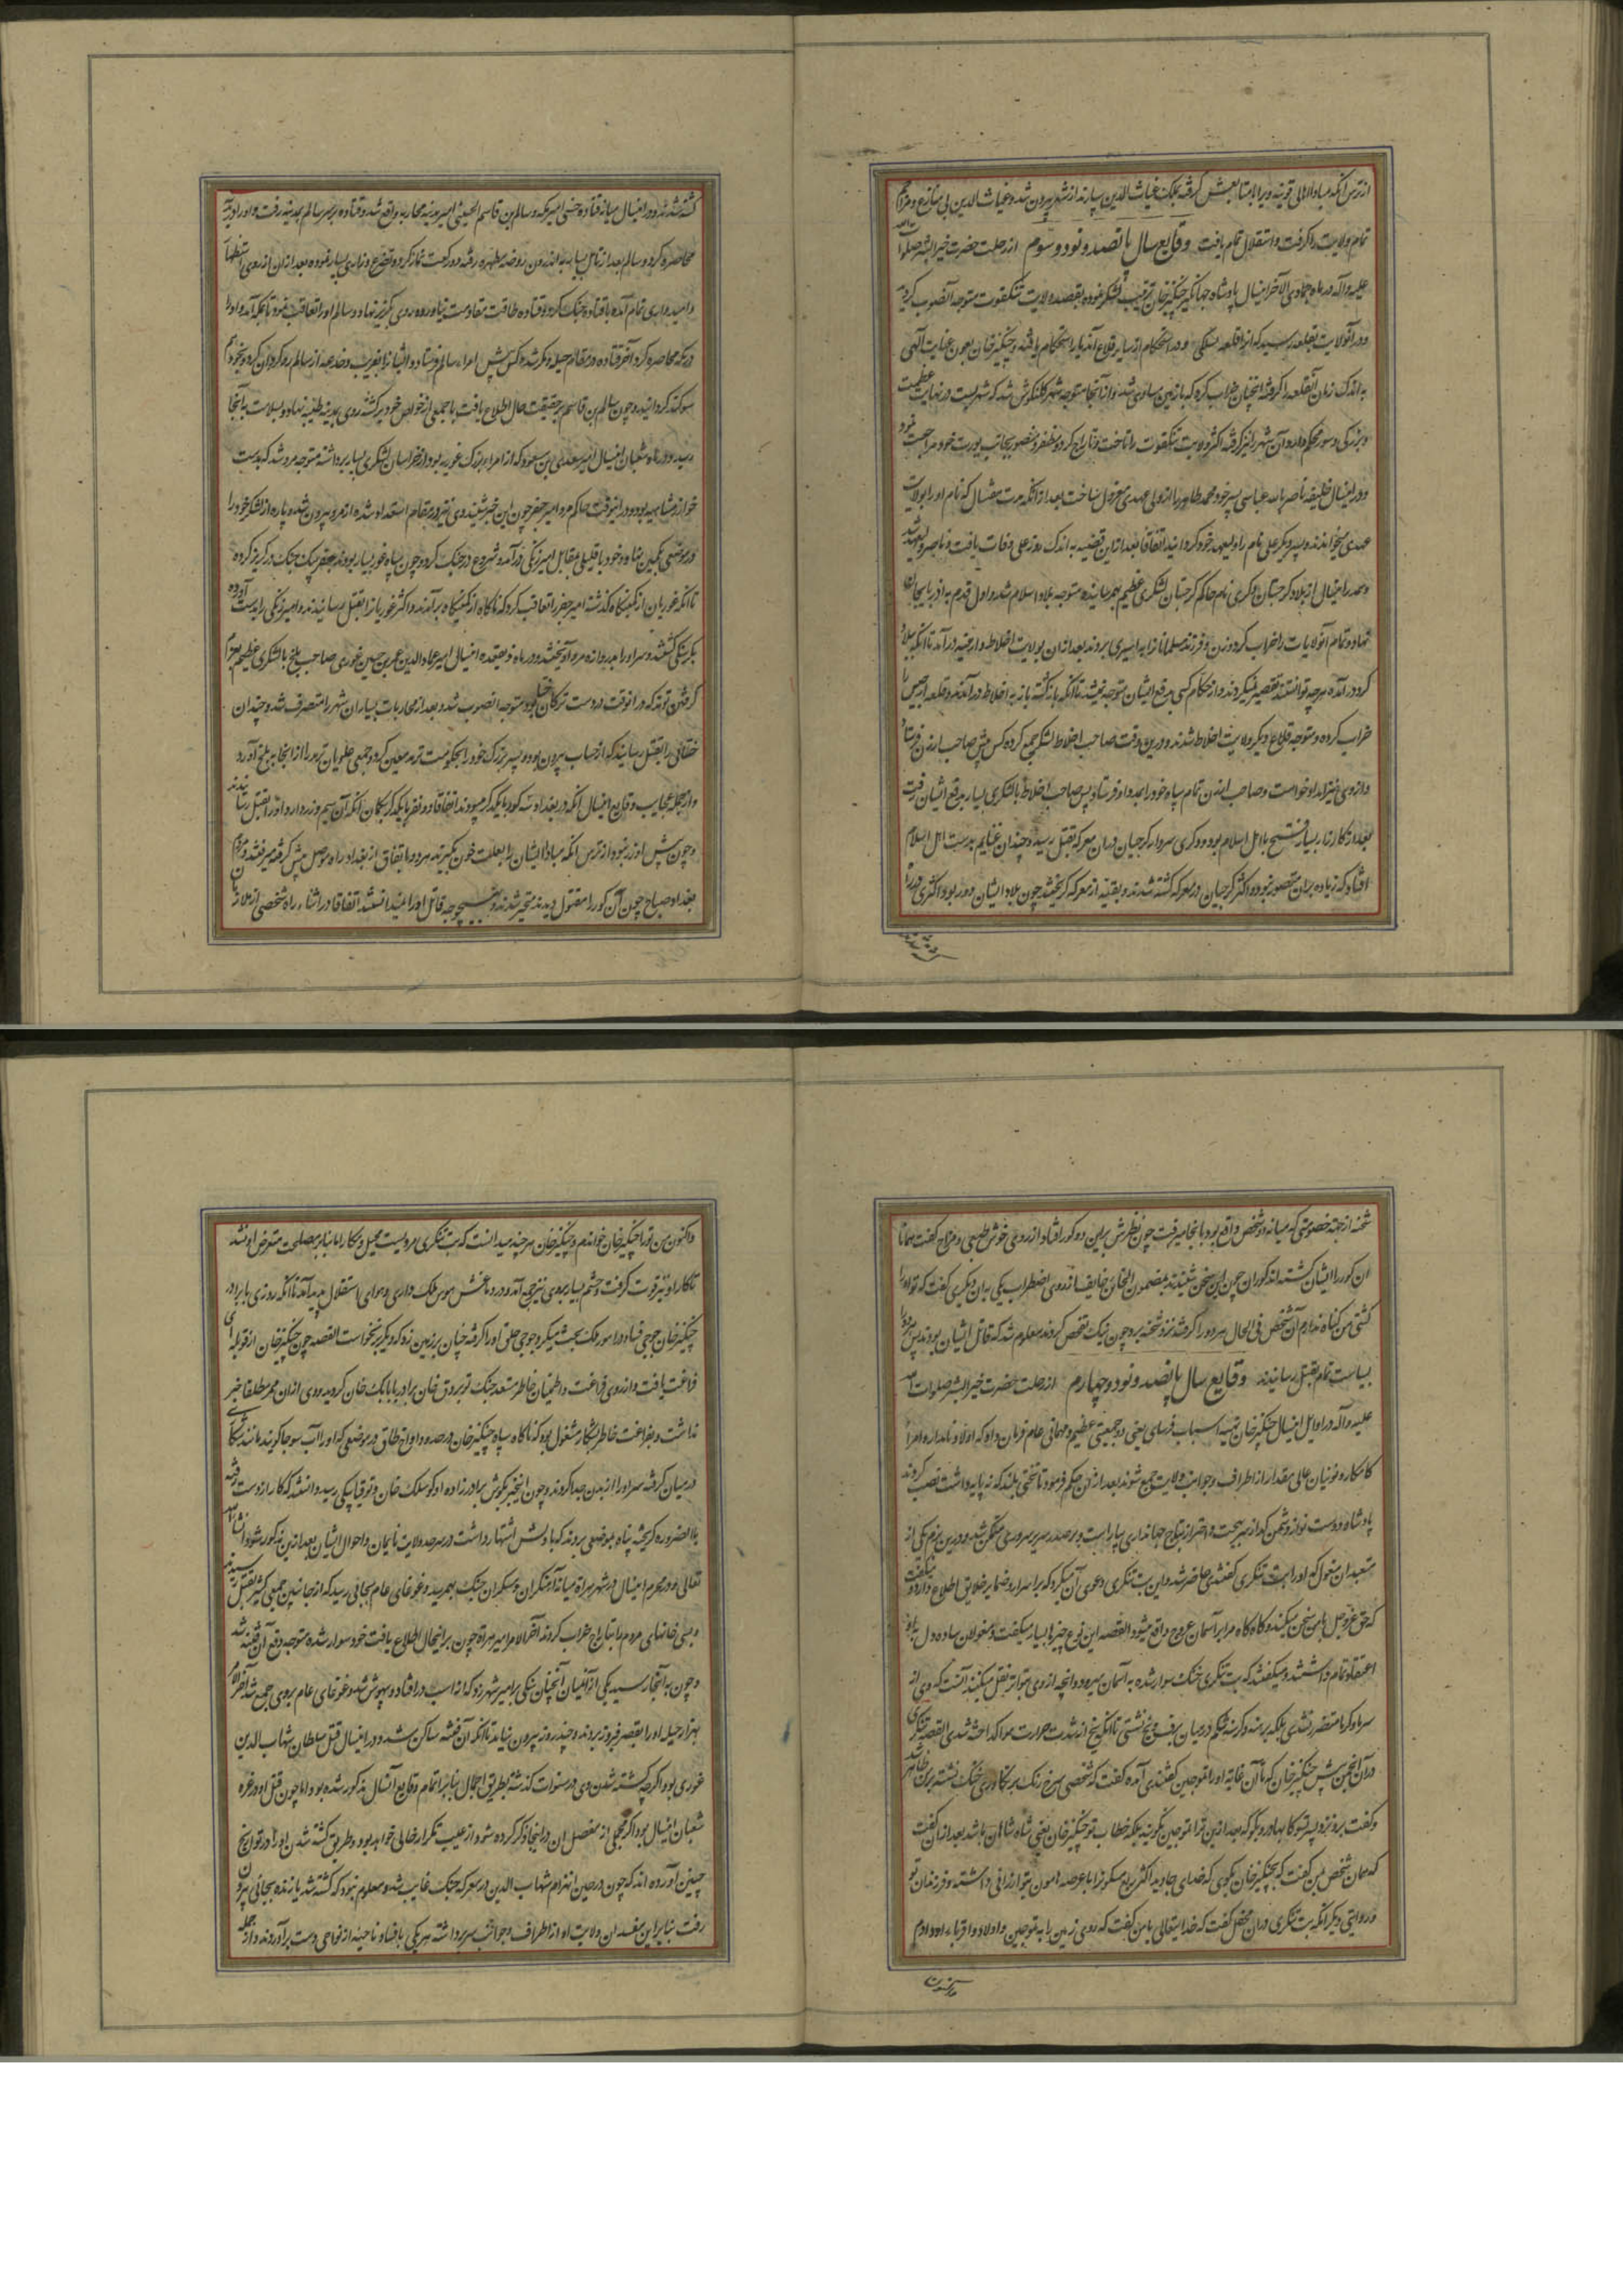 از ترس آنکه مبادا اهالی قونیه ویرا بمتابعش گرفته بملک غیاث الدین سپارند از شهر بیرون شد و غیاث الدین بی منازع و مزاحم
تمام ولایت را گرفت و استقلال تمام یافت وقایع سال پانصد و نود و سوم از رحلت حضرت خیر البشر صلوات الله
علیه و آله در ماه جمادی الآخر اینسال پادشاه جهانگیر چنگیز خان ترتیب لشکر نموده بقصد ولایت تنکقوت متوجه آنصوب گردید
و در آنولایت بقلعه رسید که آنرا قلعه میگفتند و در استحکام از سایر قلاع آندیار استحکام یافته و چنگیز خان بعون عنایت الهی
به اندک زمان آنقلعه را گرفته آنچنان خراب کرد که با زمین مساوی شد و از آنجا متوجه شهر کلنکوش شد که شهریست در نهایت عظمت
و بزرگی و سور محکم دارد و آن شهر را نیز گرفته اکثر ولایت تنکقوت را تاخت و تاراج کرد و مظفر و منصور بجانب یورت خود مراجعت نمود
و در اینسال خلیفه ناصر بالله عباسی پسر خود محمد طاهر را از ولی عهدی معزول ساخت بعد از آنکه مدت هفتسال که نام او را بولایت
عهدی میخواندند و پسر دیگر علی نام را ولیعهد خود گردانید اتفاقا بعد از این قضیه به اندک روز علی وفات یافت
و هم در اینسال از بلاد گرجستان دوکری نام حاکم گرجستان لشکری عظیم بهم رسانیده متوجه بلاد اسلام شد و اول قدم به آذربایجان
نهاد و تمام آنولایات را خراب کرد و زن و فرزند مسلمانانرا به اسیری بردند بعد از آن بولایت اخلاط و ارمنیه در آمد تا آنکه به بلاد
کرد در آمده هر چه توانستند تقصیر نمیکردند و از حکام کسی بدفع ایشان متوجه نمیشد تا آنکه باز گشته باز به اخلاط در آمدند و قلعه ارجیس را
خراب کرده و متوجه قلاع دیگر ولایت اخلاط شدند و درین وقت صاحب اخلاط لشکر جمع کرده کس پیش صاحب ارزن فرستاد
و از وی نیز امداد خواست و صاحب ارزن تمام سپاه خود را بمدد او فرستاد پس صاحب اخلاط با لشکری بسیار بدفع ایشان رفت
بعد از کارزار بسیار فتح با اهل اسلام بود و دوکری سردار گرجیان در آن معرکه بقتل رسید و چندان غنایم بدست اهل اسلام
افتاد که زیاده بر آن متصور نبود و اکثر گرجیان در معرکه کشته شدند و بقیه از معرکه گریختند چون بلاد ایشان دور بود اکثری در راه
کشته شدند
کشته شدند و در اینسال میانه قتاده حسنی امیر مکه و سالم بن قاسم الحسینی امیر مدینه محاربه واقع شد و قتاده بر سر سالم بمدینه رفت و او را در مدینه
محاصره کرد و سالم بعد از تأمل بسیار به اندرون روضه مطهره رفته دو رکعت نماز کرده و تضرع و زاری بسیار نموده بعد از آن از روی استظهار
و امیدواری تمام آمده با قتاده جنگ کرد و قتاده طاقت مقاومت نیاورده روی بگریز نهاد و سالم او را تعاقب نمود تا بمکه آمد و او را
در مکه محاصره کرد آخر قتاده در مقام حیله و مکر شده کس پیش امراء سالم فرستاد و ایشانرا بفریب و خدعه از سالم رو گردان کرد و بخود هم
سوگند گردانید و چون سالم بن قاسم بر حقیقت حال اطلاع یافت با جمعی از خواص خود برگشته روی بمدینه طیبه نهاد و بسلامت به آنجا
رسید و در ماه شعبان اینسال امیر سعدی بن مسعود که از امراء بزرگ غوریه بود از خراسان لشکری بسیار برداشته متوجه مرو شد که بدست
خوارزمشاهیه بود و در اینوقت حاکم مرو امیر جعفر چون این خبر شنید وی نیز در مقام استعداد شده از مرو بیرون شده پاره از لشکر خود را
در موضعی بکمین نشاند و خود با قلیلی مقابل امیر زنگی در آمده و شروع در جنگ کرد و چون سپاه غور بسیار بودند جعفر بیک جنگ در گریز کرده
تا آنکه غوریان از کمینگاه گذشته امیر جعفر را تعاقب کردند که ناگاه از کمینگاه بر آمدند و اکثر غوریانرا بقتل رسانیدند و امیر زنگی را بدست آورده
بکشتند و سر او را بدروازه مرو آویختند و در ماه ذیقعده اینسال امیر عماد الدین عمر بن حسین غوری صاحب بلخ با لشکری عظیم بعزم
گرفتن ترمذ که در آنوقت در دست ترکان ختا بود متوجه آنصوب شد و بعد از محاربات بسیار آن شهر را متصرف شد و چندان
ختائی را بقتل رسانید که از حساب بیرون بود و پسر بزرگ خود را بحکومت ترمذ معین کرد و جمعی علویان ترمذ را از آنجا به بلخ آورد
و از جمله عجایب وقایع اینسال آنکه در بغداد سه کور با یکدیگر میبودند اتفاقا دو نفر با یکدیگر بگمان آنکه آن سیم زر دارد او را بقتل رسانیدند
و چون پیش او زر نبود از ترس آنکه مبادا ایشان را بعلت خون بگیرند هر دو باتفاق از بغداد راه موصل پیش گرفته میرفتند و مردم
بغداد صباح چون آن کور را مقتول دیدند متحیر شدند و بهیچ وجه قاتل او را نمیدانستند اتفاقا در اثناء راه شخصی از ملازمان
شحنه از جهة خصومتی که میانه دو شخص واقع بود به آنجا میرفت چون نظرش بر این دو کور افتاد از روی خوش طبعی و مزاح گفت همانا
آن کور را ایشان کشته اند کوران چون این سخن شنیدند بمضمون الخائن خایف از روی اضطراب یکی به آن دیگری گفت که تو او را
کشتی من گناه ندارم آن شخص فی الحال هر دو را گرفته نزد شحنه برد چون نیک تفحص کردند معلوم شد که قاتل ایشان بودند پس هر دو را
بسیاست تمام بقتل رسانیدند وقایع سال پانصد و نود و چهارم از رحلت حضرت خیر البشر صلوات الله
علیه و آله در اوایل اینسال چنگیز خان تهیه اسباب قوریلتای یعنی جمعیتی عظیم و مهمانی عام فرمان داد که اولاد نامدار و امراء
کامکار و نوینان عالی مقدار از اطراف و جوانب ولایت جمع شوند بعد از آن حکم فرمود تا تختی بلند که نه پایه داشت نصب کردند
پادشاه دوست نواز دشمن گداز سر بخت و افسر از تاج جهانداری بیاراست و بر صدر سریر سروری متمکن شد و در این بزم یکی از
متعبدان مغول که او را بت تنکری گفتندی حاضر شد و این بت تنکری دعوی آن میکرد که بر اسرار و ضمایر خلایق اطلاع دارد و میگفت
که حق عز و جل با من سخن میکند و گاه گاه مرا بر آسمان عروج واقع میشود القصه این نوع چیزها بسیار میگفت و مغولان ساده دل به او
اعتقاد تمام داشتند و میگفتند که بت تنکری خنک سوار شده به آسمان میرود و آنچه از وی بتواتر نقل میکنند آنست که وی از
سرما و گرما متضرر نشدی بلکه برهنه و گرسنه شکم در میان برف و یخ نشستی تا آنکه یخ از شدت حرارت هوا گداخته شدی القصه بت تنکری
در آن انجمن پیش چنگیز خان که تا آن غایة او را تموجین گفتندی آمده گفت که شخصی سرخ رنگ بر بکادری خنک نشسته بر من ظاهر شد
و گفت برو نزد پسر یسوکا بهادر و بگو که بعد از این ترا تموجین نگویند بلکه خطاب تو چنگیز خان یعنی شاه شاهان باشد بعد از آن گفت
که همان شخص بمن گفت که بچنگیز خان بگوی که خدای جاوید اکثر ربع مسکونرا با عرصه هامون بتو ارزانی داشته و فرزندان تو
و روایتی دیگر آنکه بت تنکری در آن محفل گفت که خدایتعالی با من گفت که روی زمین را به تموجین و اولاد و اقرباء او دادم
و اکنون
و اکنون من ترا چنگیز خان خواندم و چنگیز خان هر چند میدانست که بت تنکری مردیست محیل و مکار اما بنابر مصلحت متعرض او نشد
تا کار او نیز قوت گرفت و حشم بسیار بر وی نیز جمع آمد و در دماغش هوس ملک داری و هوای استقلال پدید آمد تا آنکه روزی با برادر
چنگیز خان جوجی قسار در امور ملک بحث میکرد جوجی حلق او را گرفته چنان بر زمین زد که دیگر برنخواست القصه چون چنگیز خان از قوریلتای
فراغت یافت و از روی فراغت و اطمینان خاطر مستعد جنگ توبروق خان برادر بابا بک خان گردید و وی از آن ممر مطلقا خبر
نداشت و بفراغت خاطر بشکار مشغول بود که ناگاه سپاه چنگیز خان در حدود اولوغ طاق در موضعی که او را آب سوجا گویند مانند شکاری
در میان گرفته سر او را از بدن جدا کردند و چون اینخبر بکوش برادر زاده او کوشلک خان و توقتا بیکی رسید دانستند که کار از دست رفته
بالضروره گریخته پناه بموضعی بردند که به اردیش اشتهار داشت در سرحد ولایت نایمان و احوال ایشان بعد از این مذکور شود ان شاء الله
تعالی و در محرم اینسال در شهر هراة میانه آهنگران و مسکران جنگ بهم رسید و غوغای عام بجائی رسید که از جانبین جمعی کثیر بقتل رسیدند
و بسی خانهای مردم را بتاراج خراب کردند آخر الامر امیر هراة چون بر اینحال اطلاع یافت خود سوار شده متوجه دفع آن فتنه شد
و چون به آنجا رسید یکی از آنمیان آنچنان سنگی بر امیر شهر زد که از اسب در افتاد و بیهوش شد و غوغای عام بر وی جمع شد آخر الامر
بهزار حیله او را بقصر فیروز بردند و چند روز بیرون نیامد تا آنکه آن فتنه ساکن شد و در اینسال قتل سلطان شهاب الدین
غوری بود اگر چه کشته شدن وی در سنوات گذشته بطریق اجمال بنابر اتمام وقایع آنسال مذکور شده بود اما چون قتل او در غره
شعبان اینسال بود اگر مجملی از مفصل آن در اینجا ذکر کرده شود از عیب تکرار خالی خواهد بود و طریق کشته شدن او را در تواریخ
چنین آورده اند که چون در حین انهزام شهاب الدین در معرکه جنگ غایب شد و معلوم نبود که کشته شد یا زنده بجائی بیرون
رفت بنابراین مفسدان ولایت او از اطراف و جوانب سر برداشته هر یکی با فساد ناحیه از نواحی دست بر آوردند و از جمله